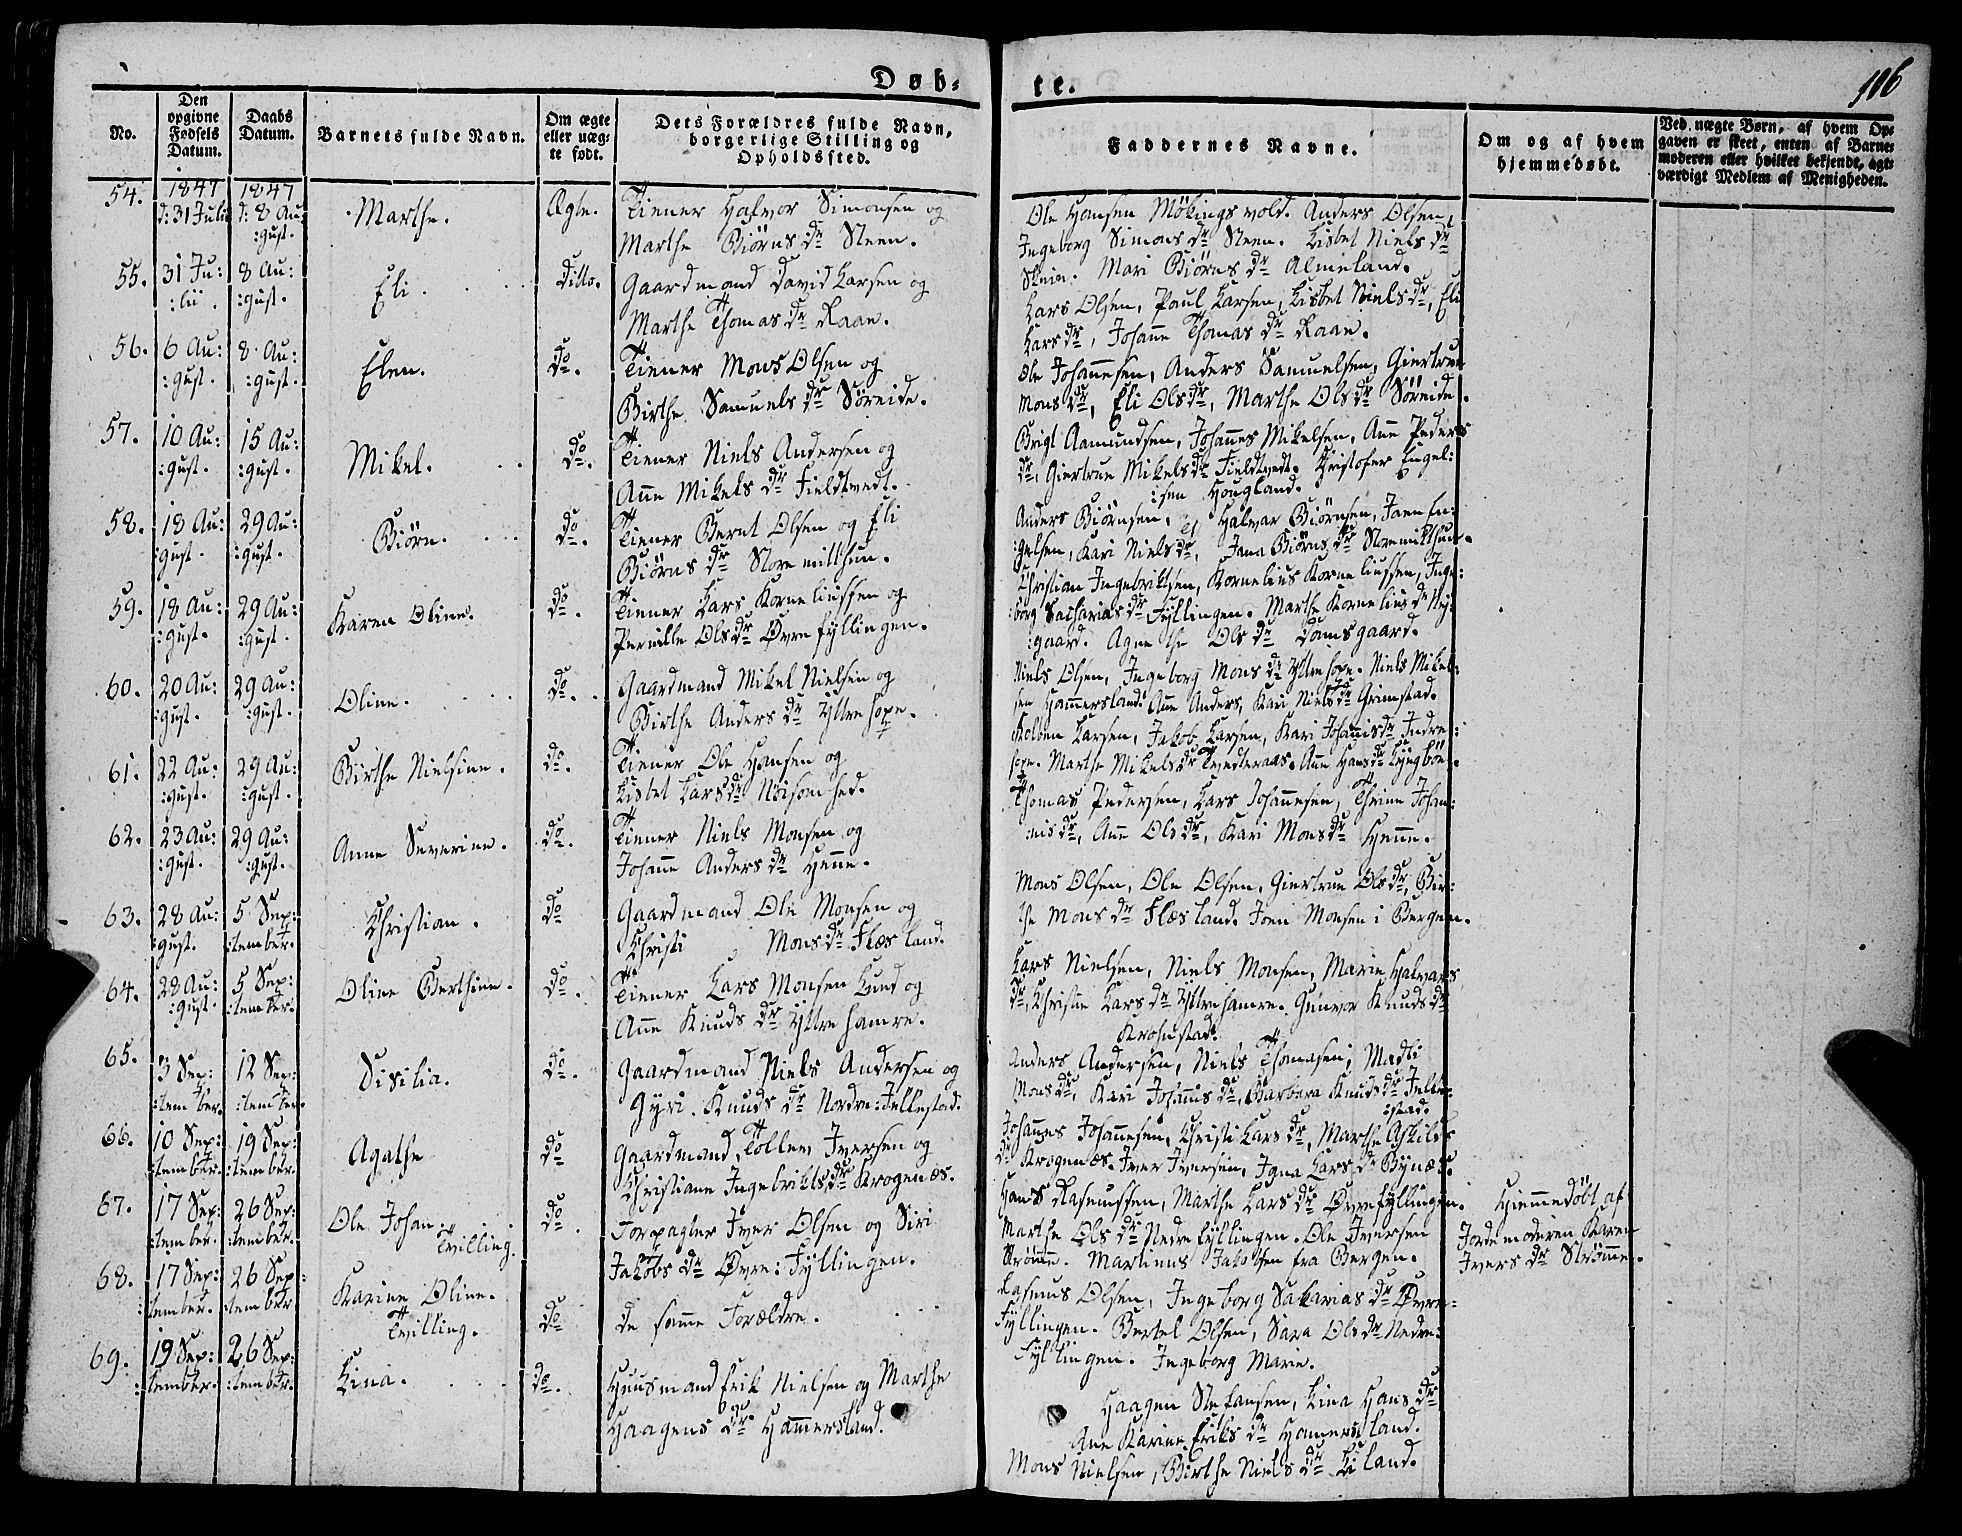 Døb-
te.
106
No.
Den opgivne Fødsels Datum.
Daabs Datum.
Barnets fulde Navn.
Om ægte eller uæg-te født.
Dets Forældres fulde Navn, borgerlige Stilling og Opholdssted.
Faddernes Navne.
Om og af hvem hjemmedøbt.
Ved uægte Børn, af hvem Op-gaven er skeet, enten af Barne-moderen eller hvilket bekjendt, agt-værdigt Medlem af Menigheden.
54. 1847 d: 31 Julii 1847 d: 8 Au:gust. Marthe. Ægte. Tiener Halvor Simonsen og
Marthe Biörns dr Steen.
Ole Hansen Mökingsvold. Anders Olsen,
Ingeborg Simons dr Steen. Lisbet Niels dr
Stein. Mari Biörns dr Almeland.
55. 31 Ju:lii. 8 Au:gust. Eli. Ditto. Gaardmand David Larsen og
Marthe Thomas dr Raae.
Lars Olsen, Paul Larsen, Lisbet Niels dr, Eli
Lars dr, Johanne Thomas dr Raae.
56. 6 Au:gust. 8 Au:gust. Elen. do. Tiener Mons Olsen og
Birthe Samuels dr Söreide.
Ole Johannesen, Anders Samuelsen, Giertrue
Mons dr, Eli Ols dr, Marthe Ols dr Söreide.
57. 10 Au:gust. 15 Au:gust. Mikel. do. Tiener Niels Andersen og
Anne Mikels dr Fieldtvedt.
Brigt Aamundsen, Johannes Mikelsen, Ane Peders
dr, Giertrue Mikels dr Fieldtvedt. Christofer Engel:
:sen Hougland.
58. 18 Au:gust. 29 Au:gust. Biörn. do. Tiener Bernt Olsen og Eli
Biörns dr Storemilthun.
Anders Biörnsen, Halvar Biörnsen, Joen En:
gelsen, Kari Niels dr, Jana Biörns dr Storemilthun.
59. 18 Au:gust. 29 Au:gust. Karen Oline. do. Tiener Lars Korneliussen og
Pernille Ols dr Øvre fyllingen.
Christian Ingebriktsen, Kornelius Korneliussen, Inge:
borg Sacharias dr Fyllingen. Marthe Kornelius dr Ny:
:gaard. Agnethe Ols dr Damsgaard.
60. 20 Au:gust. 29 Au:gust. Oline. do. Gaardmand Mikel Nielsen og
Birthe Anders dr Yttrehope.
Niels Olsen, Ingeborg Mons dr Yttrehope. Niels Mikel:
sen Hammersland. Ane Anders, Kari Niels dr Grimstad.
61. 22 Au:gust. 29 Au:gust. Birthe Nielsine. do. Tiener Ole Hansen og
Lisbet Lars dr Nöisomhed.
Larsen, Jakob Larsen, Kari Johannis dr Indre:
hope. Marthe Mikels dr Tvedteraas. Ane Hans dr Lyngböe.
62. 23 Au:gust. 29 Au:gust. Anne Severine. do. Tiener Niels Monsen og
Johanne Anders dr Henne.
Thomas Pedersen, Lars Johannesen, Thrine Johan:
nis dr, Ane Ols dr, Kari Mons dr Henne.
63. 28 Au:gust. 5 Sep:tember. Christian. do Gaardmand Ole Monsen og
Christi Mons dr Flæsland.
Mons Olsen, Ole Olsen, Giertrue Ols dr, Bir:
the Mons dr Flæsland. Joen Monsen i Bergen.
64. 28 Au:gust 5 Sep:tember. Oline Berthine. do. Tiener Lars Monsen Lund og
Anne Knuds dr Yttrehamre.
Lars Nielsen, Niels Monsen, Marie Halvars
dr, Christine Lars dr Yttrehamre. Gunvor Knuds dr
Krohnstad.
65. 3 Sep:tember. 12 Sep:tember. Sisilia. do. Gaardmand Niels Andersen og
Gyri Knuds dr Nordre: Jellestad.
Anders Andersen, Niels Thomasen, Madli
Mons dr, Kari Johannis dr, Barbara Knuds dr Jelle:
:stad.
66. 10 Sep:tember. 19 Sep:tember. Agathe do Gaardmand, Tollev Iversen og
Christiane Ingebrikts dr Krogenæs.
Johannes Johannesen, Christi Lars dr, Marthe Askilds
dr Krogenæs. Iver Iversen, Lars dr Bynæs.
67. 17 Sep:tember. 26 Sep:tember. Ole Johan: Tvilling. do. Forpagter Iver Olsen og Siri
Jakobs dr Øvre: Fyllingen.
Hans Rasmussen, Marthe Lars dr Øvrefyllingen.
Marthe Ols dr Nedre fyllingen. Ole Iversen
Strömme. Martinus Jakobsen fra Bergen.
Hiemmedöbt af
Jordemoderen Karen
Ivers dr Strömme.
68. 17 Sep:tember. 26 Sep:tember Karine Oline. Tvilling. do de samme Forældre.
Rasmus Olsen, Ingeborg Sakarias dr Øvre-
Fyllingen. Bertel Olsen, Sara Ols dr Nedre:
Fyllingen. Ingeborg Marie.
69. 19 Sep:tember. 26 Sep:tember. Lina. do. Huusmand Erik Nielsen og Marthe
Haagens dr Hammersland.
Haagen Stefansen, Lina Hans dr
Ane Karine Eriks dr Hamersland.
Mons Nielsen, Birthe Niels dr Liland.